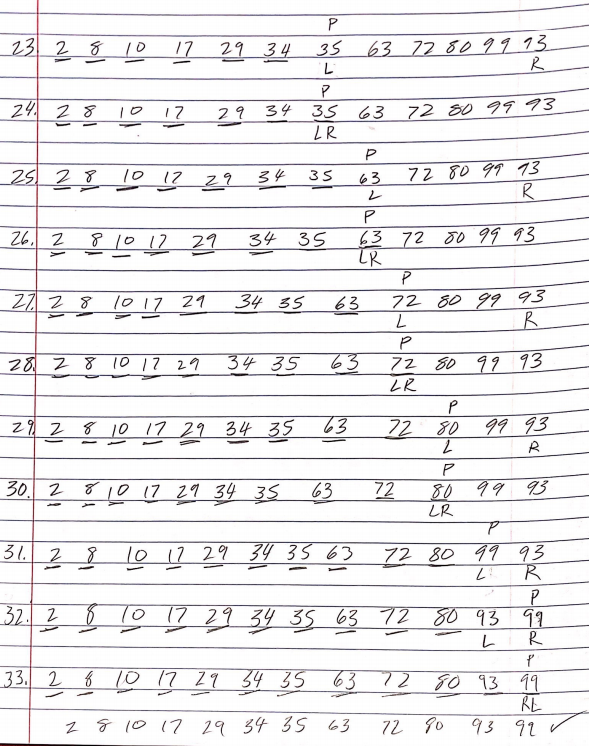 P
23. 2 8 10 17 29 34 35 63 72 80 99 93
L R
P
24. 2 8 10 17 29 34 35 63 72 80 99 93
LR
P
25. 2 8 10 17 29 34 35 63 72 80 99 93
L R
P
26. 2 8 10 17 29 34 35 63 72 80 99 93
LR
P
27. 2 8 10 17 29 34 35 63 72 80 99 93
L R
P
28. 2 8 10 17 29 34 35 63 72 80 99 93
LR
P
29. 2 8 10 17 29 34 35 63 72 80 99 93
L R
P
30. 2 8 10 17 29 34 35 63 72 80 99 93
LR
P
31. 2 8 10 17 29 34 35 63 72 80 99 93
L R
P
32. 2 8 10 17 29 34 35 63 72 80 93 99
L R
P
33. 2 8 10 17 29 34 35 63 72 80 93 99
RL
2 8 10 17 29 34 35 63 72 80 93 99 ✓